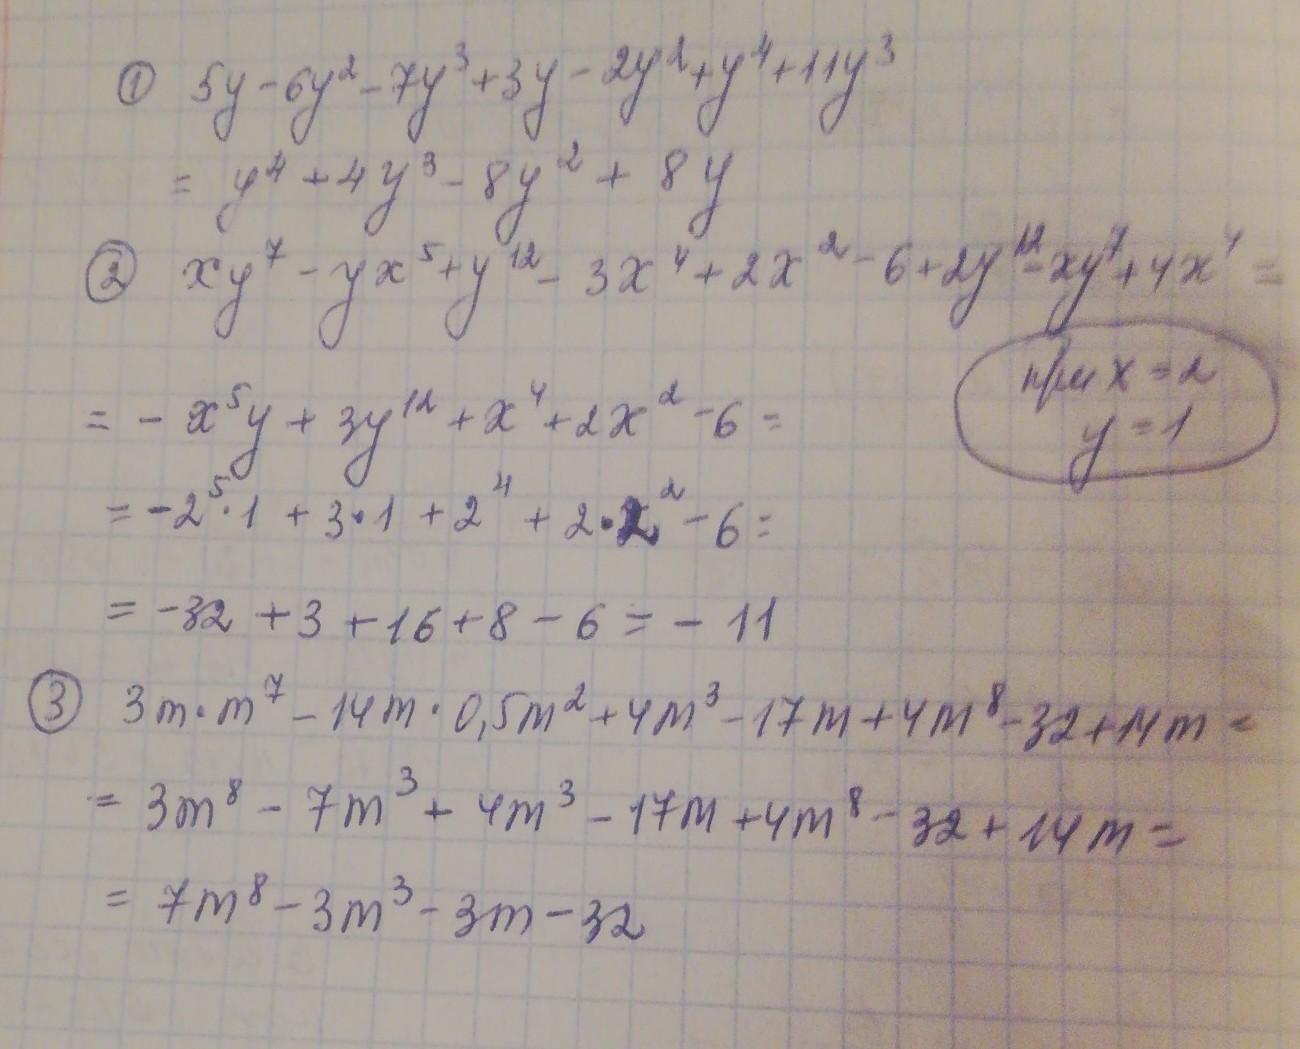 ① 5y - 6y² - 7y³ + 3y - 2y² + y⁴ + 11y³
= y⁴ + 4y³ - 8y² + 8y
② xy⁷ - yx⁵ + y¹² - 3x⁴ + 2x² - 6 + 2y¹² - xy⁷ + 4x⁴ =
при x = 2
y = 1
= - x⁵y + 3y¹² + x⁴ + 2x² - 6 =
= -2⁵·1 + 3·1 + 2⁴ + 2·2² - 6 =
= -32 + 3 + 16 + 8 - 6 = - 11
③ 3m·m⁷ - 14m·0,5m² + 4m³ - 17m + 4m⁸ - 32 + 14m =
= 3m⁸ - 7m³ + 4m³ - 17m + 4m⁸ - 32 + 14m =
= 7m⁸ - 3m³ - 3m - 32